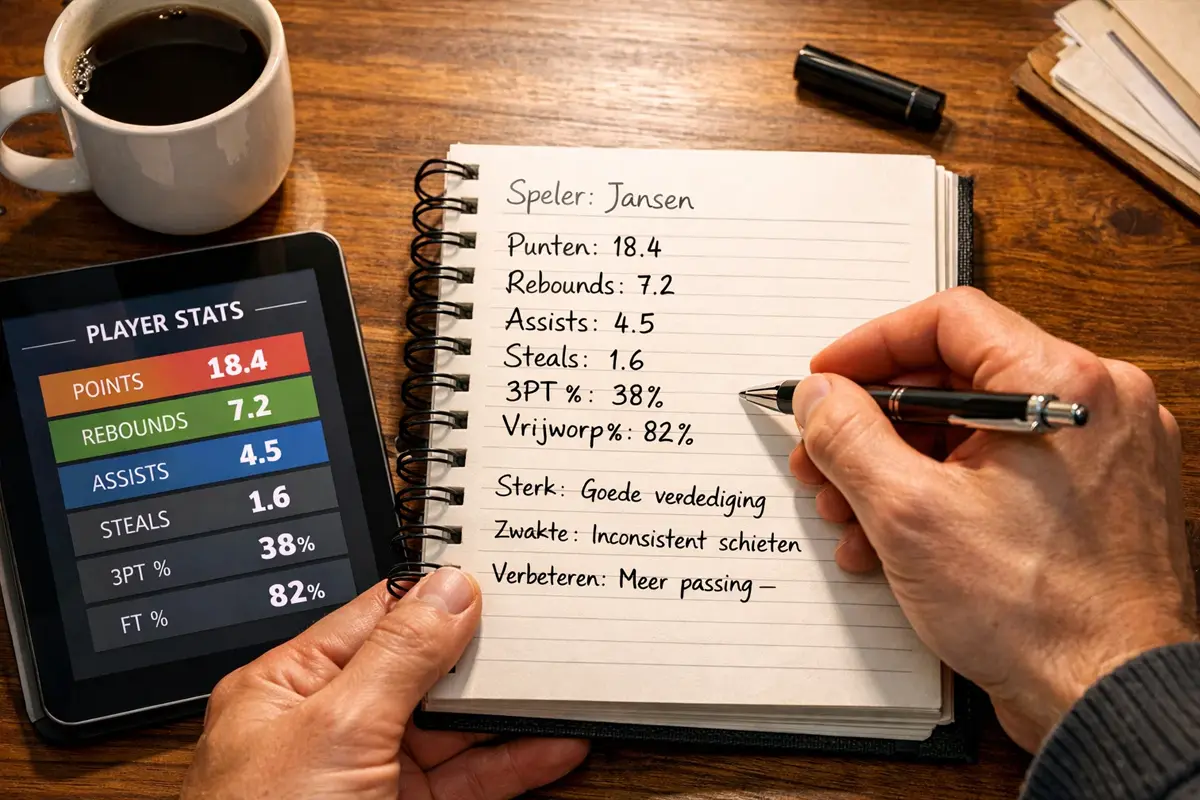 PLAYER STATS
POINTS 18.4
REBOUNDS 7.2
ASSISTS 4.5
STEALS 1.6
3PT % 38%
FT % 82%
Speler: Jansen
Punten: 18.4
Rebounds: 7.2
Assists: 4.5
Steals: 1.6
3PT %: 38%
Vrijworp%: 82%
Sterk: Goede verdediging
Zwakte: Inconsistent schieten
Verbeteren: Meer passing —